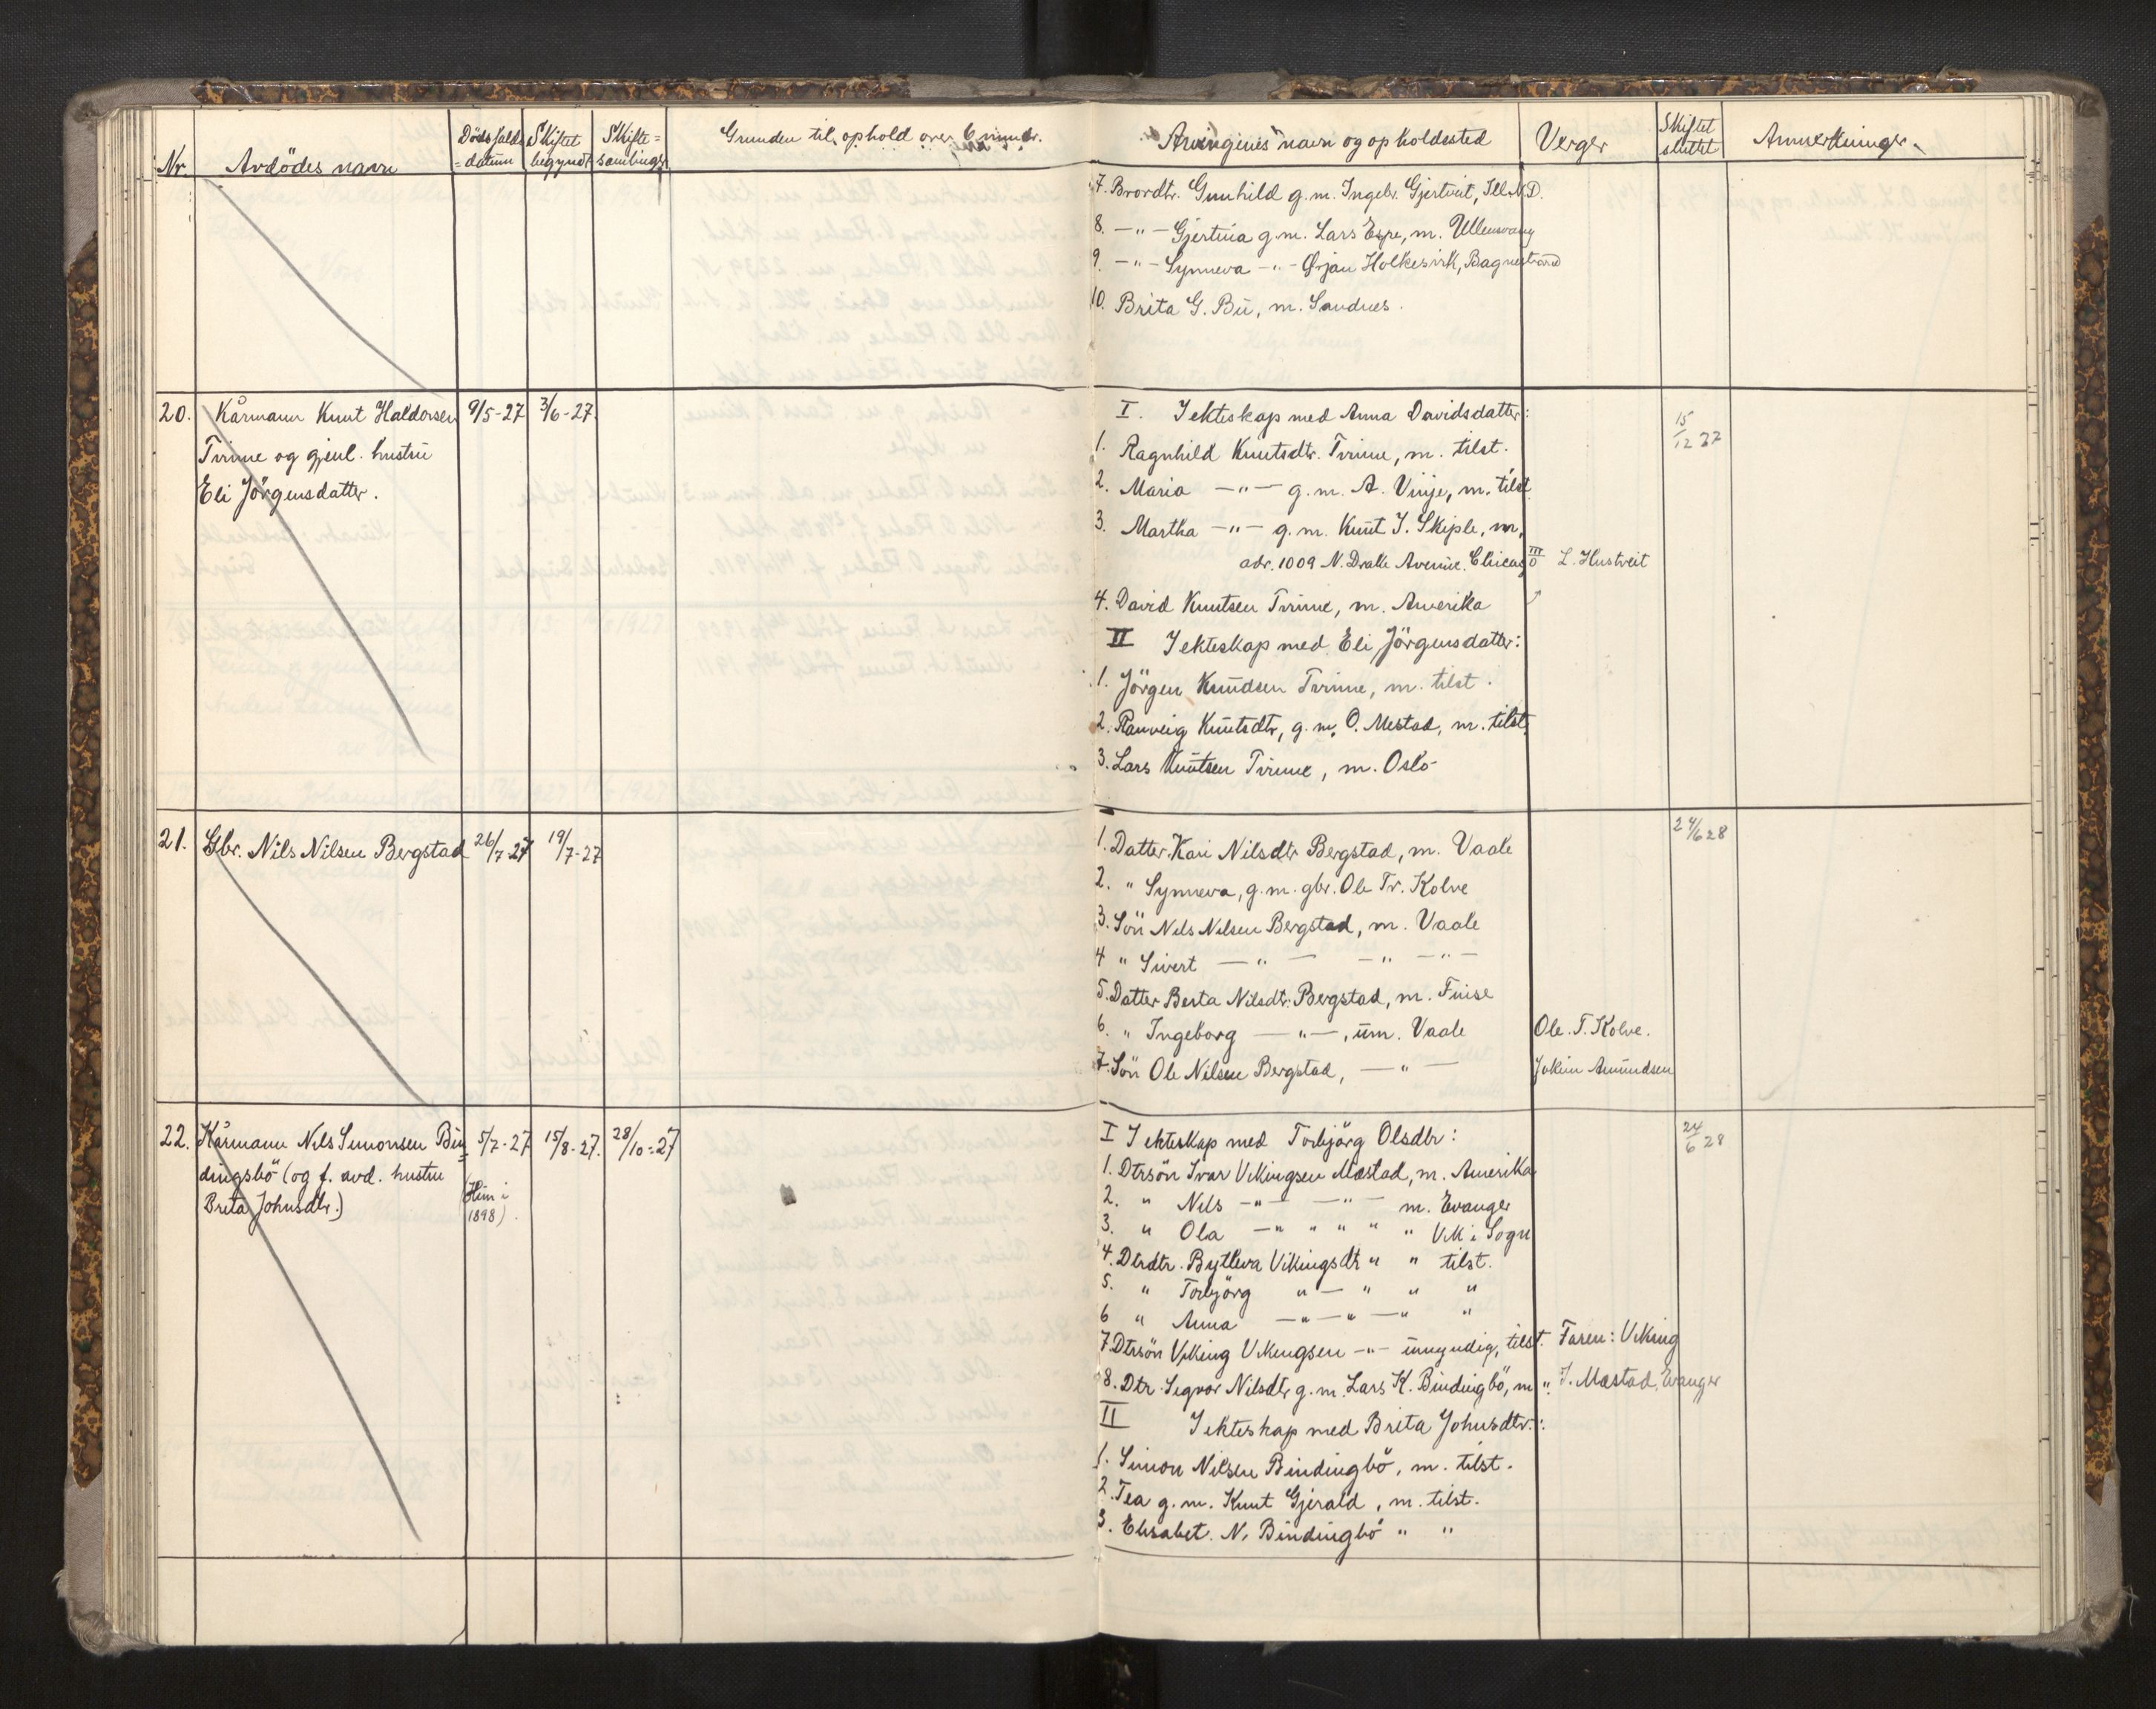 Nr.
Avdödes navn
Dödsfalds
=datum
Skiftet
begyndt
Skifte=
samlinger
Grunden til ophold over 6 mndr.
Arvingenes navn og opholdssted
Verger
Skiftet
sluttet
Anmerkninger.
7. Brordtr. Gunhild g.m. Ingebr. Gjertveit,
8. —"— Gjertina g.m. Lars Espe, m. Ullensvang
9. —"— Synneva —"— Ørjan Holkesvik, Bagnestrand
10. Brita G. Bu, m. Sandnes.
20. Kårmann Knut Haldorsen 9/5-27 3/6-27.
Tvinne og gjenl. hustru
Eli Jörgensdatter.
I. I ekteskap med Anna Davidsdatter:
15/12 27
1. Ragnhild Knutsdtr. Tvinne, m. tilst.
2. Maria —"— g.m. A. Vinje, m. tilst.
3. Martha —"— g.m. Knut J. Skiple, m,
adr. 1009 N. Drake Avenue. Chicago III L. Hustveit
4. David Knutsen Tvinne, m. Amerika
II I ekteskap med Eli Jörgensdatter:
1. Jörgen Knudsen Tvinne, m. tilst.
2. Ranveig Knutsdtr, g.m. O. Mestad, m. tilst.
3. Lars Knutsen Tvinne, m. Oslo
21. Gbr. Nils Nilsen Bergstad 26/7-27 19/7-27
24/6 28
1. Datter Kari Nilsdtr Bergstad, m. Vaale
2. " Synneva, g.m. gbr. Ole Tr. Kolve
3. Sön Nels Nelsen Bergstad, m. Vaale
4 " Sivert —"— —"— —"—
5. Datter Berta Nilsdtr. Bergstad, m. Finse
6. " Ingeborg —"—, um. Vaale Ole T. Kolve.
7. Sön Ole Nilsen Bergstad, —"— Jokim Amundsen
22. Kårmann Nils Simonsen Bin= 5/7-27 15/8-27. 28/10-27
dingsbö (og f. avd. hustru
Brita Johnsdtr.)
(Hun i
1898).
I I ekteskap med Torbjörg Olsdtr:
24/6 28
1. Dtrsön Ivar Vikingsen Mæstad, m. Amerika
2. " Nils —"— —"— m. Evanger
3. " Ola —" " " " " Vik i Sogn
4. Dtrdtr. Bytleva Vikingsdtr " " tilst.
5. " Torbjörg " — " " "
6 " Anna —"—"—" "
7. Dtrsön Viking Vikingsen —"— umyndig, tilst. Faren: Viking
8. Dtr. Segvor Nilsdtr g.m. Lars K. Bindingbö, m ". J. Mæstad, Evanger
II I ekteskap med Brita Johnsdtr.:
1. Simon Nilsen Bindingbö, m. tilst.
2. Tea g.m. Knut Gjerald, m. tilst.
3. Elisabet. N. Bindingbö " "